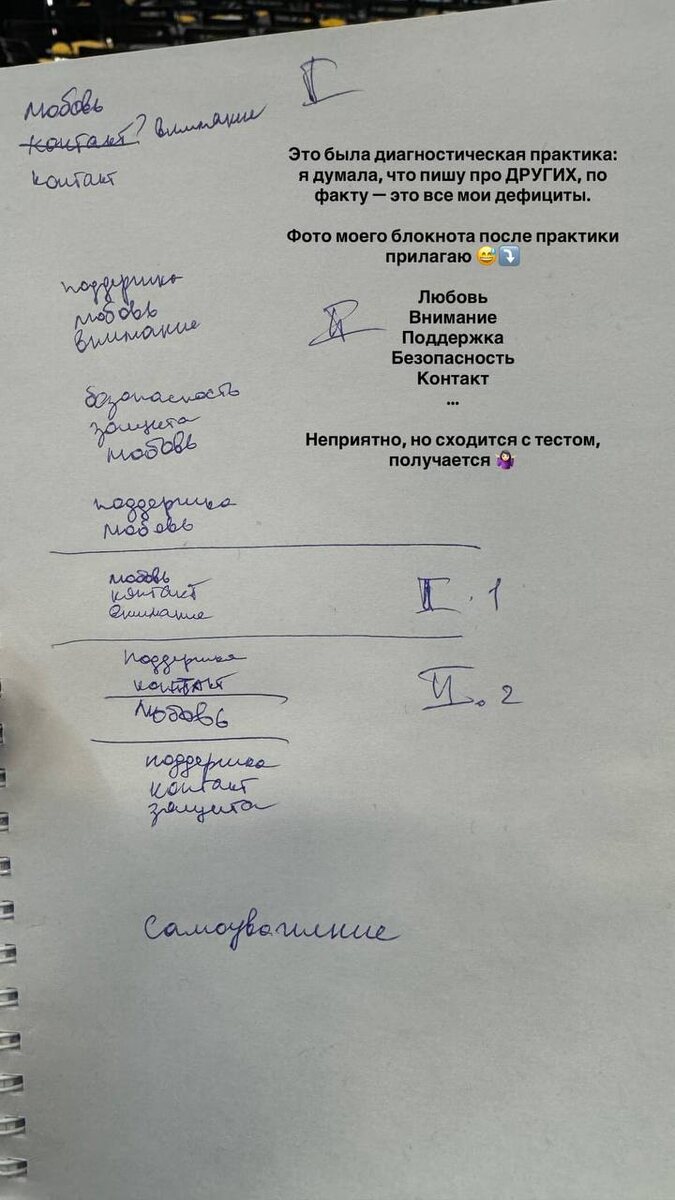 I
любовь
контакт? внимание
контакт
Это была диагностическая практика:
я думала, что пишу про ДРУГИХ, по
факту — это все мои дефициты.
Фото моего блокнота после практики
прилагаю 😅⤵️
Любовь
Внимание
Поддержка
Безопасность
Контакт
...
Неприятно, но сходится с тестом,
получается 🤷🏻‍♀️
поддержка
любовь
внимание
II
безопасность
защита
любовь
поддержка
любовь
любовь
контакт
внимание
I. 1
поддержка
контакт
любовь
II. 2
поддержка
контакт
защита
самоуважение